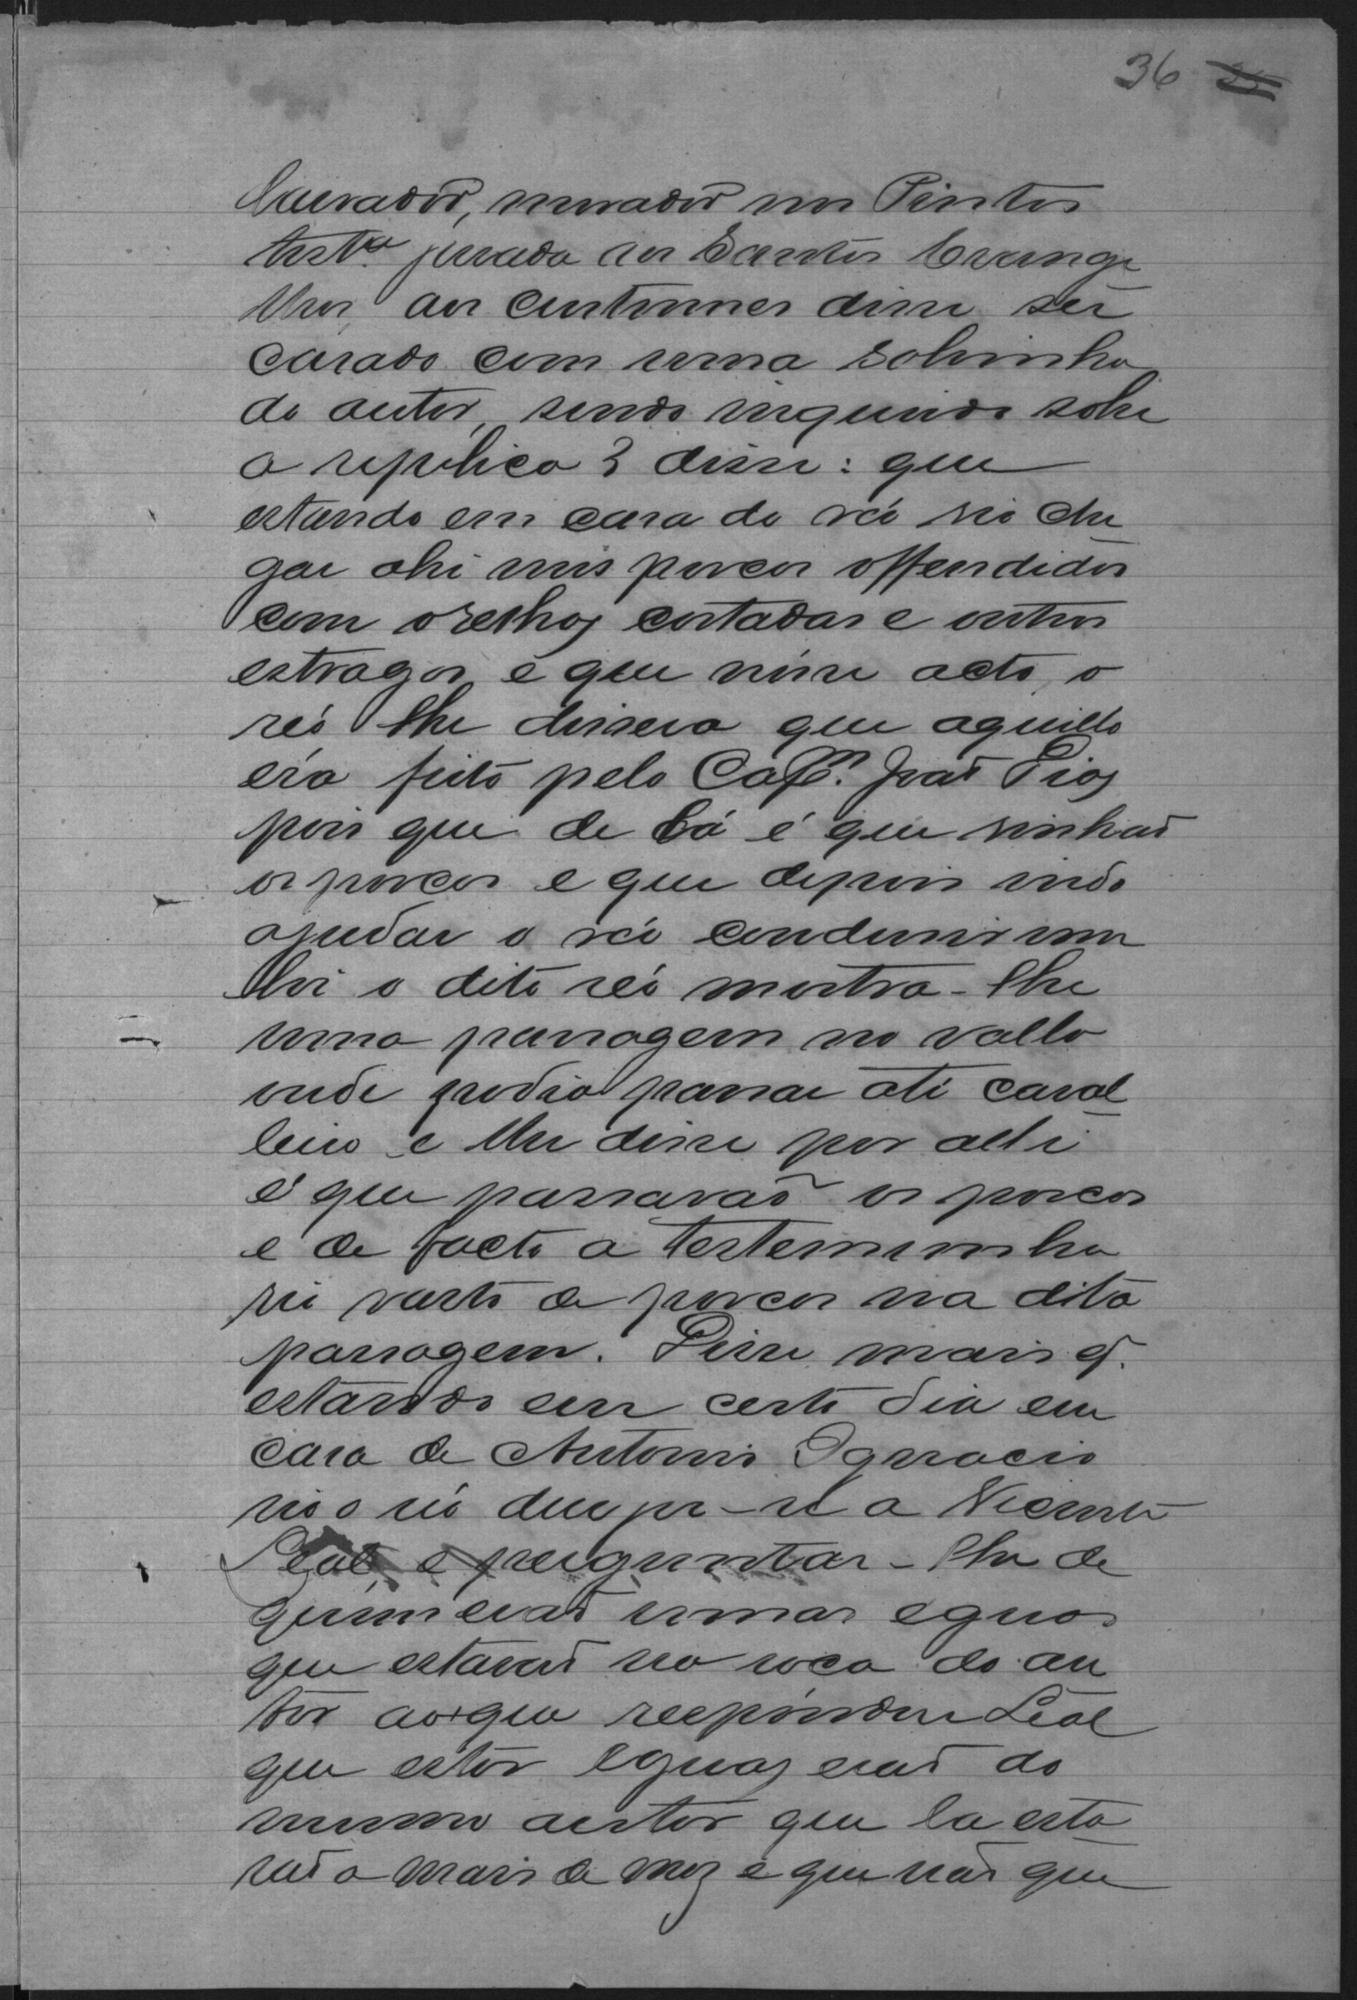 36 25
lavrador, morador nos Pintos
testª jurada aos Santos Evange
lhos, aos custumes disse ser
casado com uma sobrinha
do autor, sendo inquirido sobre
a replica 3 disse: que
estando em casa do reó vio che
gar ahi uns porcos offendidos
com orelhas cortadas e outros
estragos e que nisse acto, o
reó lhe dissera que aquillo
éra feito pelo Capm. João Dias
pois que de lá é que vinhaõ
os porcos e que depois indo
ajudar o reó condusir um
boi o dito reó mostra-lhe
uma passagem no vallo
onde podia passar até caval
leiro e lhe disse por alli
é que passavaõ os porcos
e de facto a testemunha
vio rasto de porcos na dita
passagem. Disse mais q.
estando em certo dia em
casa de Antonio Ignacio
vio o reó derigir-se a Vicente
Leal e preguntar-lhe de
quem eraõ umas eguas
que estavaõ na roça do au
tor ao que respondeu Leal
que estas eguas eraõ do
mesmo autor que la esta
vaõ a mais de mez e que naõ que